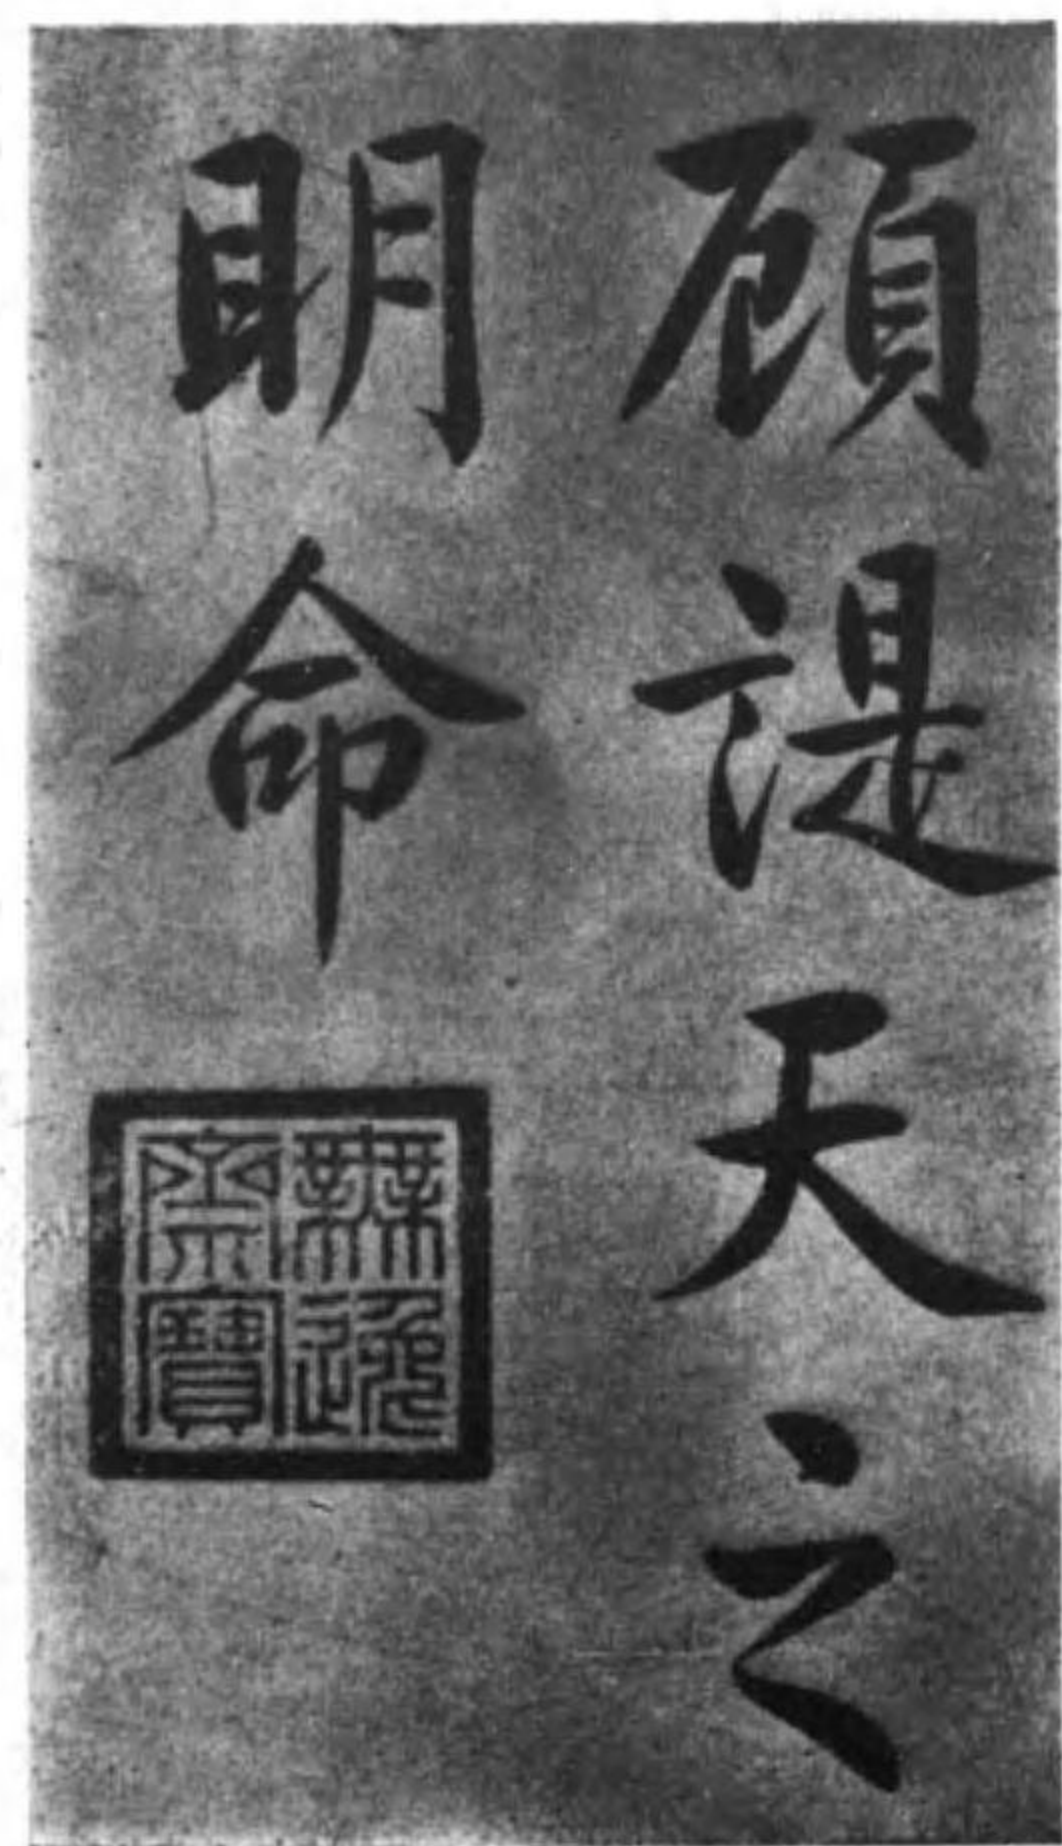 顧諟天之
明命
無逸齋寶